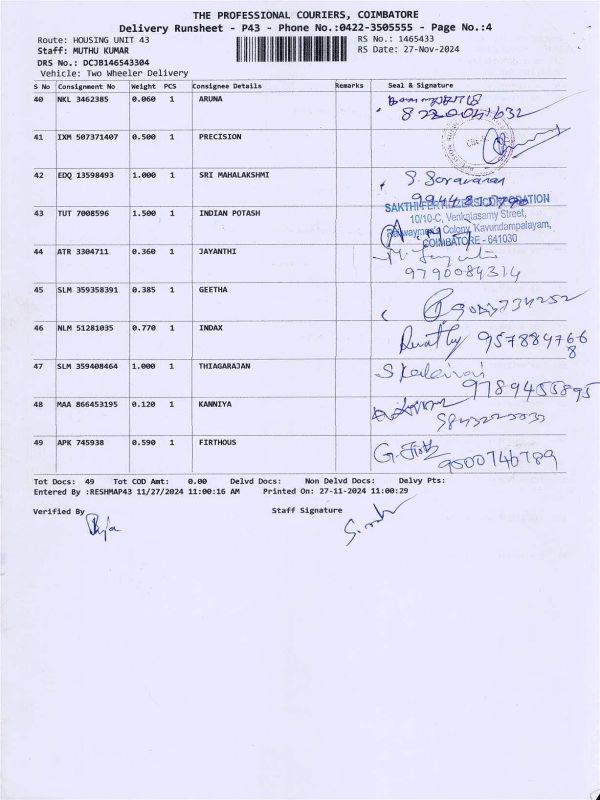 THE PROFESSIONAL COURIERS, COIMBATORE
Delivery Runsheet - P43 - Phone No.:0422-3505555 - Page No.:4
Route: HOUSING UNIT 43 RS No.: 1465433
Staff: MUTHU KUMAR RS Date: 27-Nov-2024
DRS No.: DCJB146543304
Vehicle: Two Wheeler Delivery
S No Consignment No Weight PCS Consignee Details Remarks Seal & Signature
40 NKL 3462385 0.060 1 ARUNA
41 IXM 507371407 0.500 1 PRECISION
42 EDQ 13598493 1.000 1 SRI MAHALAKSHMI S. Saravanan
43 TUT 7008596 1.500 1 INDIAN POTASH
SAKTHI FERTILIZERS CORPORATION
10/10-C, Venkatasamy Street,
Railwaymen's Colony, Kavundampalayam,
COIMBATORE - 641030
44 ATR 3304711 0.360 1 JAYANTHI
9790084314
45 SLM 359358391 0.385 1 GEETHA
46 NLM 51281035 0.770 1 INDAX 9578847668
47 SLM 359408464 1.000 1 THIAGARAJAN S Kalaivani
9789455895
48 MAA 866453195 0.120 1 KANNIYA
49 APK 745938 0.590 1 FIRTHOUS
9500746789
Tot Docs: 49 Tot COD Amt: 0.00 Delvd Docs: Non Delvd Docs: Delvy Pts:
Entered By :RESHMAP43 11/27/2024 11:00:16 AM Printed On: 27-11-2024 11:00:29
Verified By Staff Signature